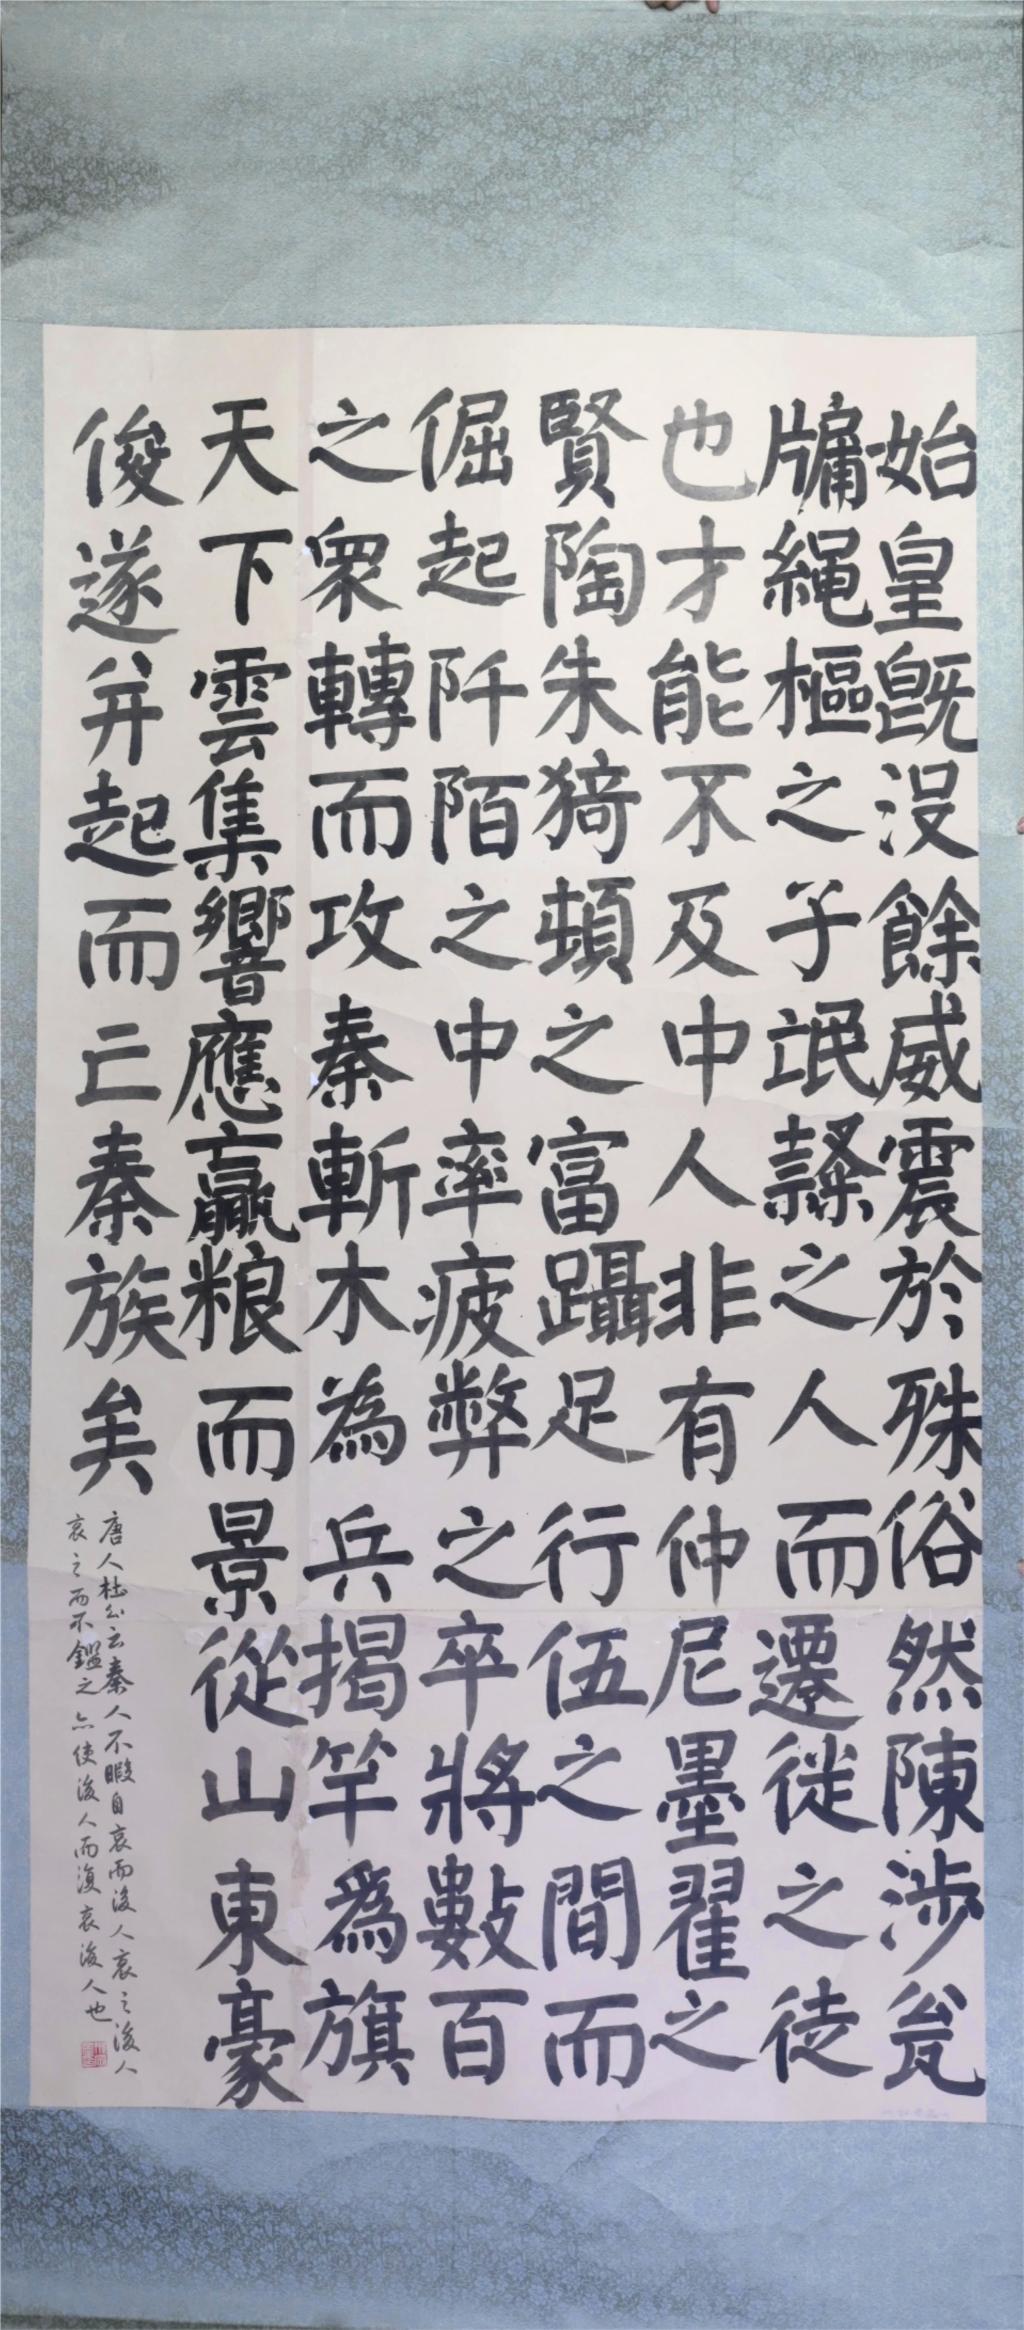 始皇既没餘威震於殊俗然陳涉瓮
牖繩樞之子氓隸之人而遷徙之徒
也才能不及中人非有仲尼墨翟之
賢陶朱猗頓之富躡足行伍之間而
倔起阡陌之中率疲弊之卒將數百
之眾轉而攻秦斬木為兵揭竿為旗
天下雲集響應贏粮而景從山東豪
俊遂并起而亡秦族矣
唐人杜公云秦人不暇自哀而後人哀之後人
哀之而不鑑之亦使後人而復哀後人也